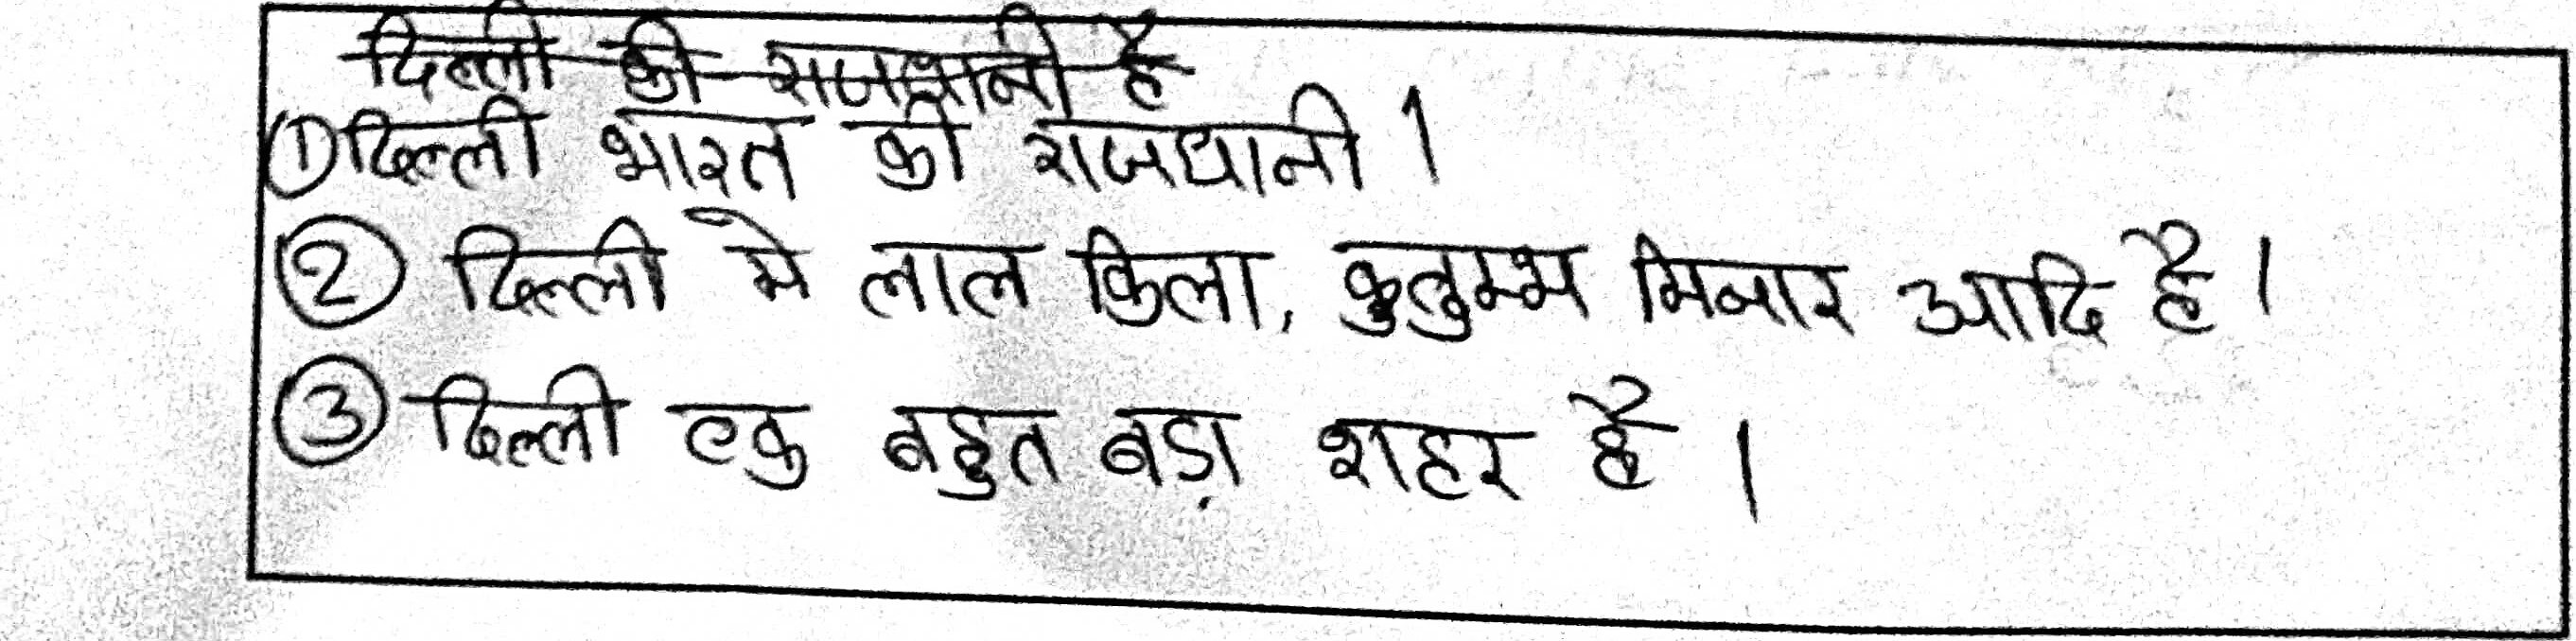 दिल्ली की राजधानी है
① दिल्ली भारत की राजधानी ।
② दिल्ली मे लाल किला, कुतुम्भ मिनार आदि है ।
③ दिल्ली एक बहुत बड़ा शहर है ।